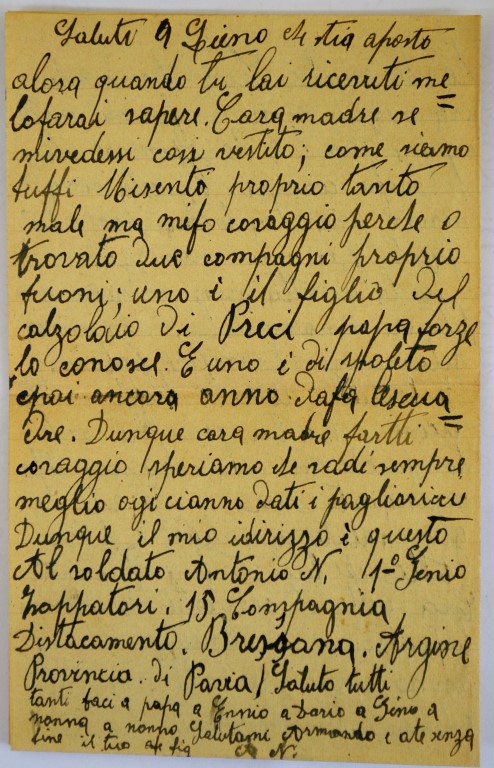 Saluti a Gieno che stia aposto
alora quando tu lai ricevuti me=
lofarai sapere. Cara madre se
mivedessi cosi vestito; come siamo
tuffi Misento proprio tanto
male ma mifo coraggio perche o
trovato due compagni proprio
buoni; uno è il figlio del
calzolaio di Preci papa forze
lo conosce. E uno è di spoleto
epoi ancora anno dafa lescua=
dre. Dunque cara madre fartti
coraggio speriamo che vadi sempre
meglio ogi cianno dati i pagliaricci
Dunque il mio idirizzo è questo
Al soldato Antonio N. 1º Genio
Zappatori. 15 Conpagnia
Distacamento. Bressana. Argine
Provincia di Pavia / Saluto tutti
tanti baci a papa a Ennio a Dario a Gino a
nonna a nonno Salutami Armando e ate senza
fine il tuo fig A. N.